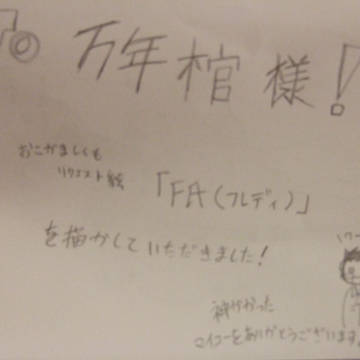 万年棺様!
おこがましくも
リクエスト絵
「FA(フレディ)」
を描かして いただきました!
ロイコーをありがとうございます